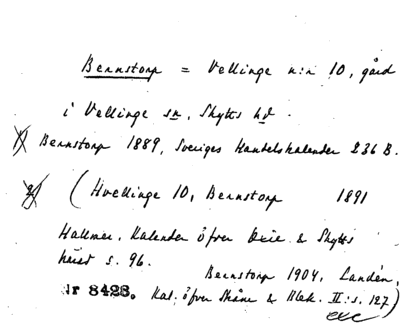 Bernstorp = Vellinge n:r 10, gård
i Vellinge sn, Skytts hd.
1) Bernstorp 1889, Sveriges Handelskalender 236 B.
2) (Hvellinge 10, Bernstorp 1891
Hallmer. Kalender öfver Oxie & Skytts
härad s. 96.
Bernstorp 1904, Landén,
Nr 8428. Kal. öfver Skåne & Blek. II: s. 127)